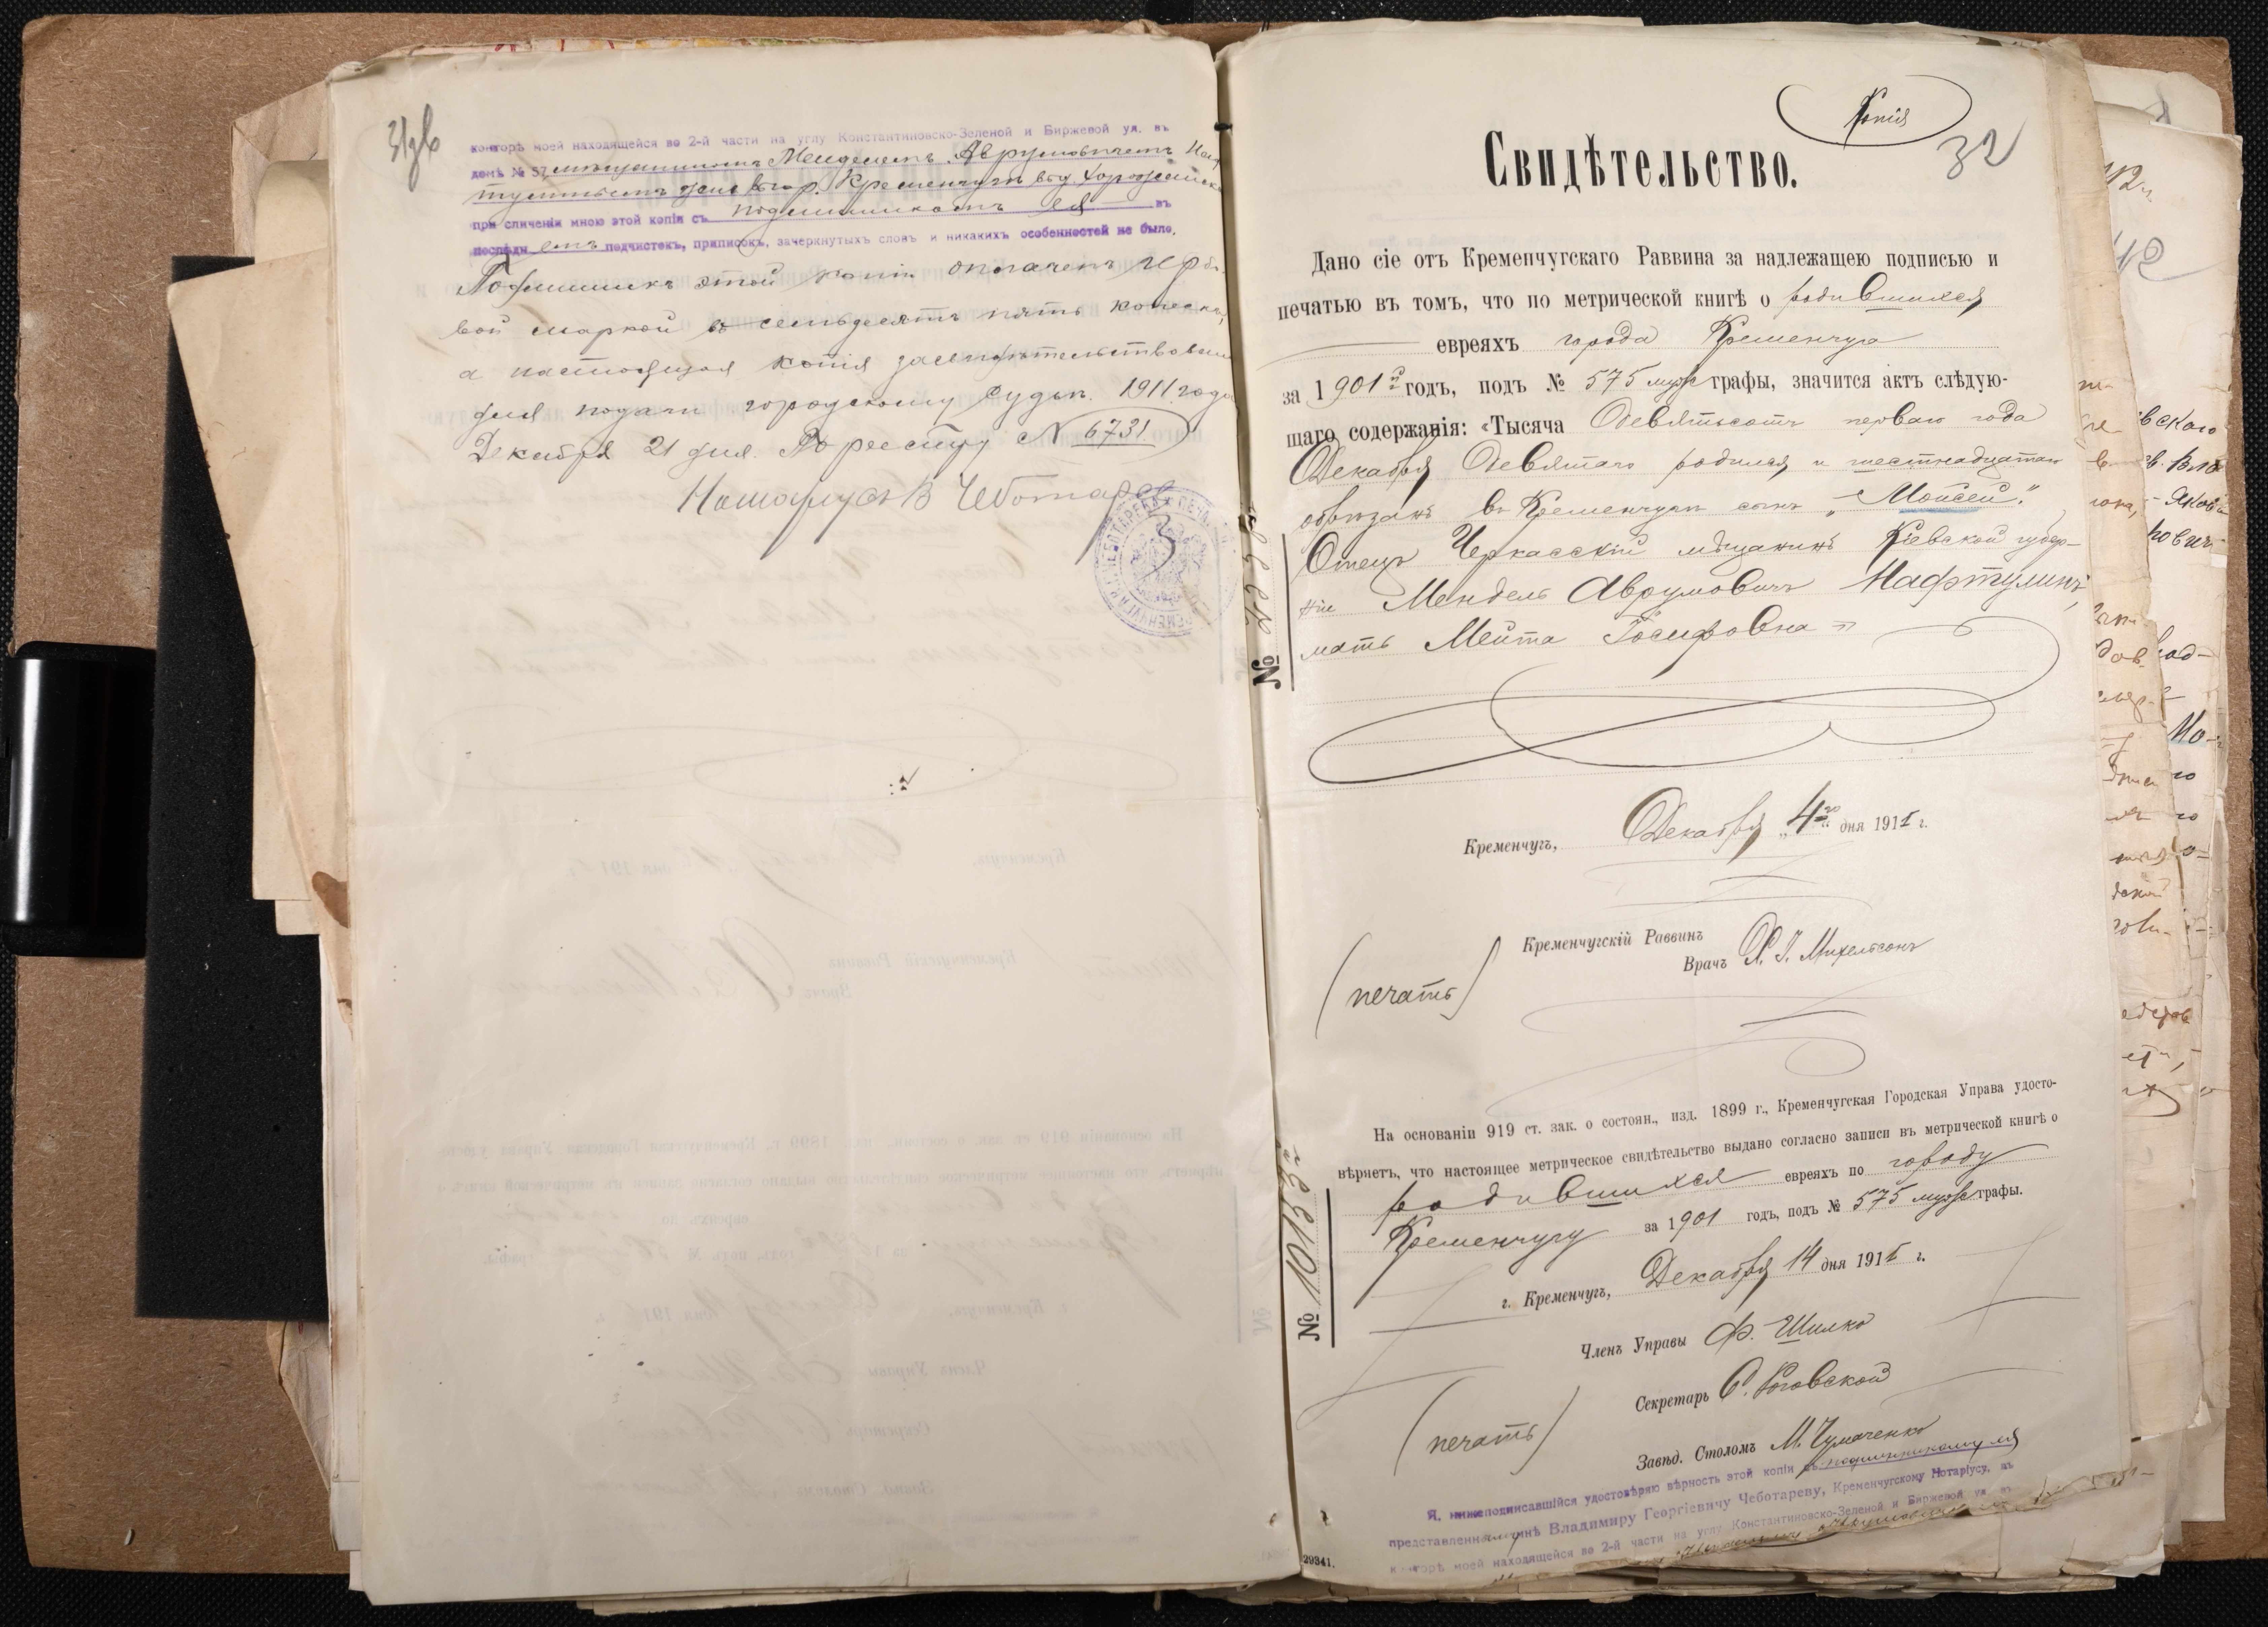 конторѣ моей находящейся во 2-й части на углу Константиновско-Зеленой и Биржевой ул. въ
домѣ № 37, мѣщаниномъ Менделемъ Аврумовичемъ Наф
тулинымъ жив. въ гор. Кременчугѣ
при сличеніи мною этой копіи съ подлинникомъ ея въ
послѣднемъ подчистокъ, приписокъ, зачеркнутыхъ словъ и никакихъ особенностей не было.
Подлинникъ этой копіи оплаченъ гербо-
вой маркой въ семьдесятъ пять копѣекъ,
а настоящая копія засвидѣтельствована
для подачи городскому судьѣ. 1911 года
Декабря 21 дня. По реестру № 6731
Нотаріусъ В Чеботаревъ
Копія
32
Свидѣтельство.
Дано сіе отъ Кременчугскаго Раввина за надлежащею подписью и
печатью въ томъ, что по метрической книгѣ о родившихся
евреяхъ города Кременчуга
за 1901й годъ, подъ № 575 муж. графы, значится актъ слѣдую-
щаго содержанія: «Тысяча Девятьсотъ перваго года
Декабря Девятаго родился и шестнадцатаго
обрѣзанъ въ Кременчугѣ сынъ „Мойсей."
Отецъ Черкасскій мѣщанинъ Кіевской губер-
ніи Мендель Аврумовичъ Нафтулинъ,
мать Мейта Іосифовна"
№
Кременчугъ, Декабря „4го" дня 1911 г.
Кременчугскій Раввинъ
Врачъ Х. І. Михельсонъ
(печать)
На основаніи 919 ст. зак. о состоян., изд. 1899 г., Кременчугская Городская Управа удосто-
вѣряетъ, что настоящее метрическое свидѣтельство выдано согласно записи въ метрической книгѣ о
родившихся евреяхъ по городу
Кременчугу за 1901 годъ, подъ № 575 муж. графы.
№ 10155
г. Кременчугъ, Декабря 14 дня 1911 г.
Членъ Управы Ф. Шилко
Секретарь С. Роговской
(печать)
Завѣд. Столомъ М. Чумаченко
Я, нижеподписавшійся удостовѣряю вѣрность этой копіи съ подлинникомъ ея
представленнымъ мнѣ Владимиру Георгіевичу Чеботареву, Кременчугскому Нотаріусу, въ
конторѣ моей находящейся во 2-й части на углу Константиновско-Зеленой и Биржевой ул въ
29341.